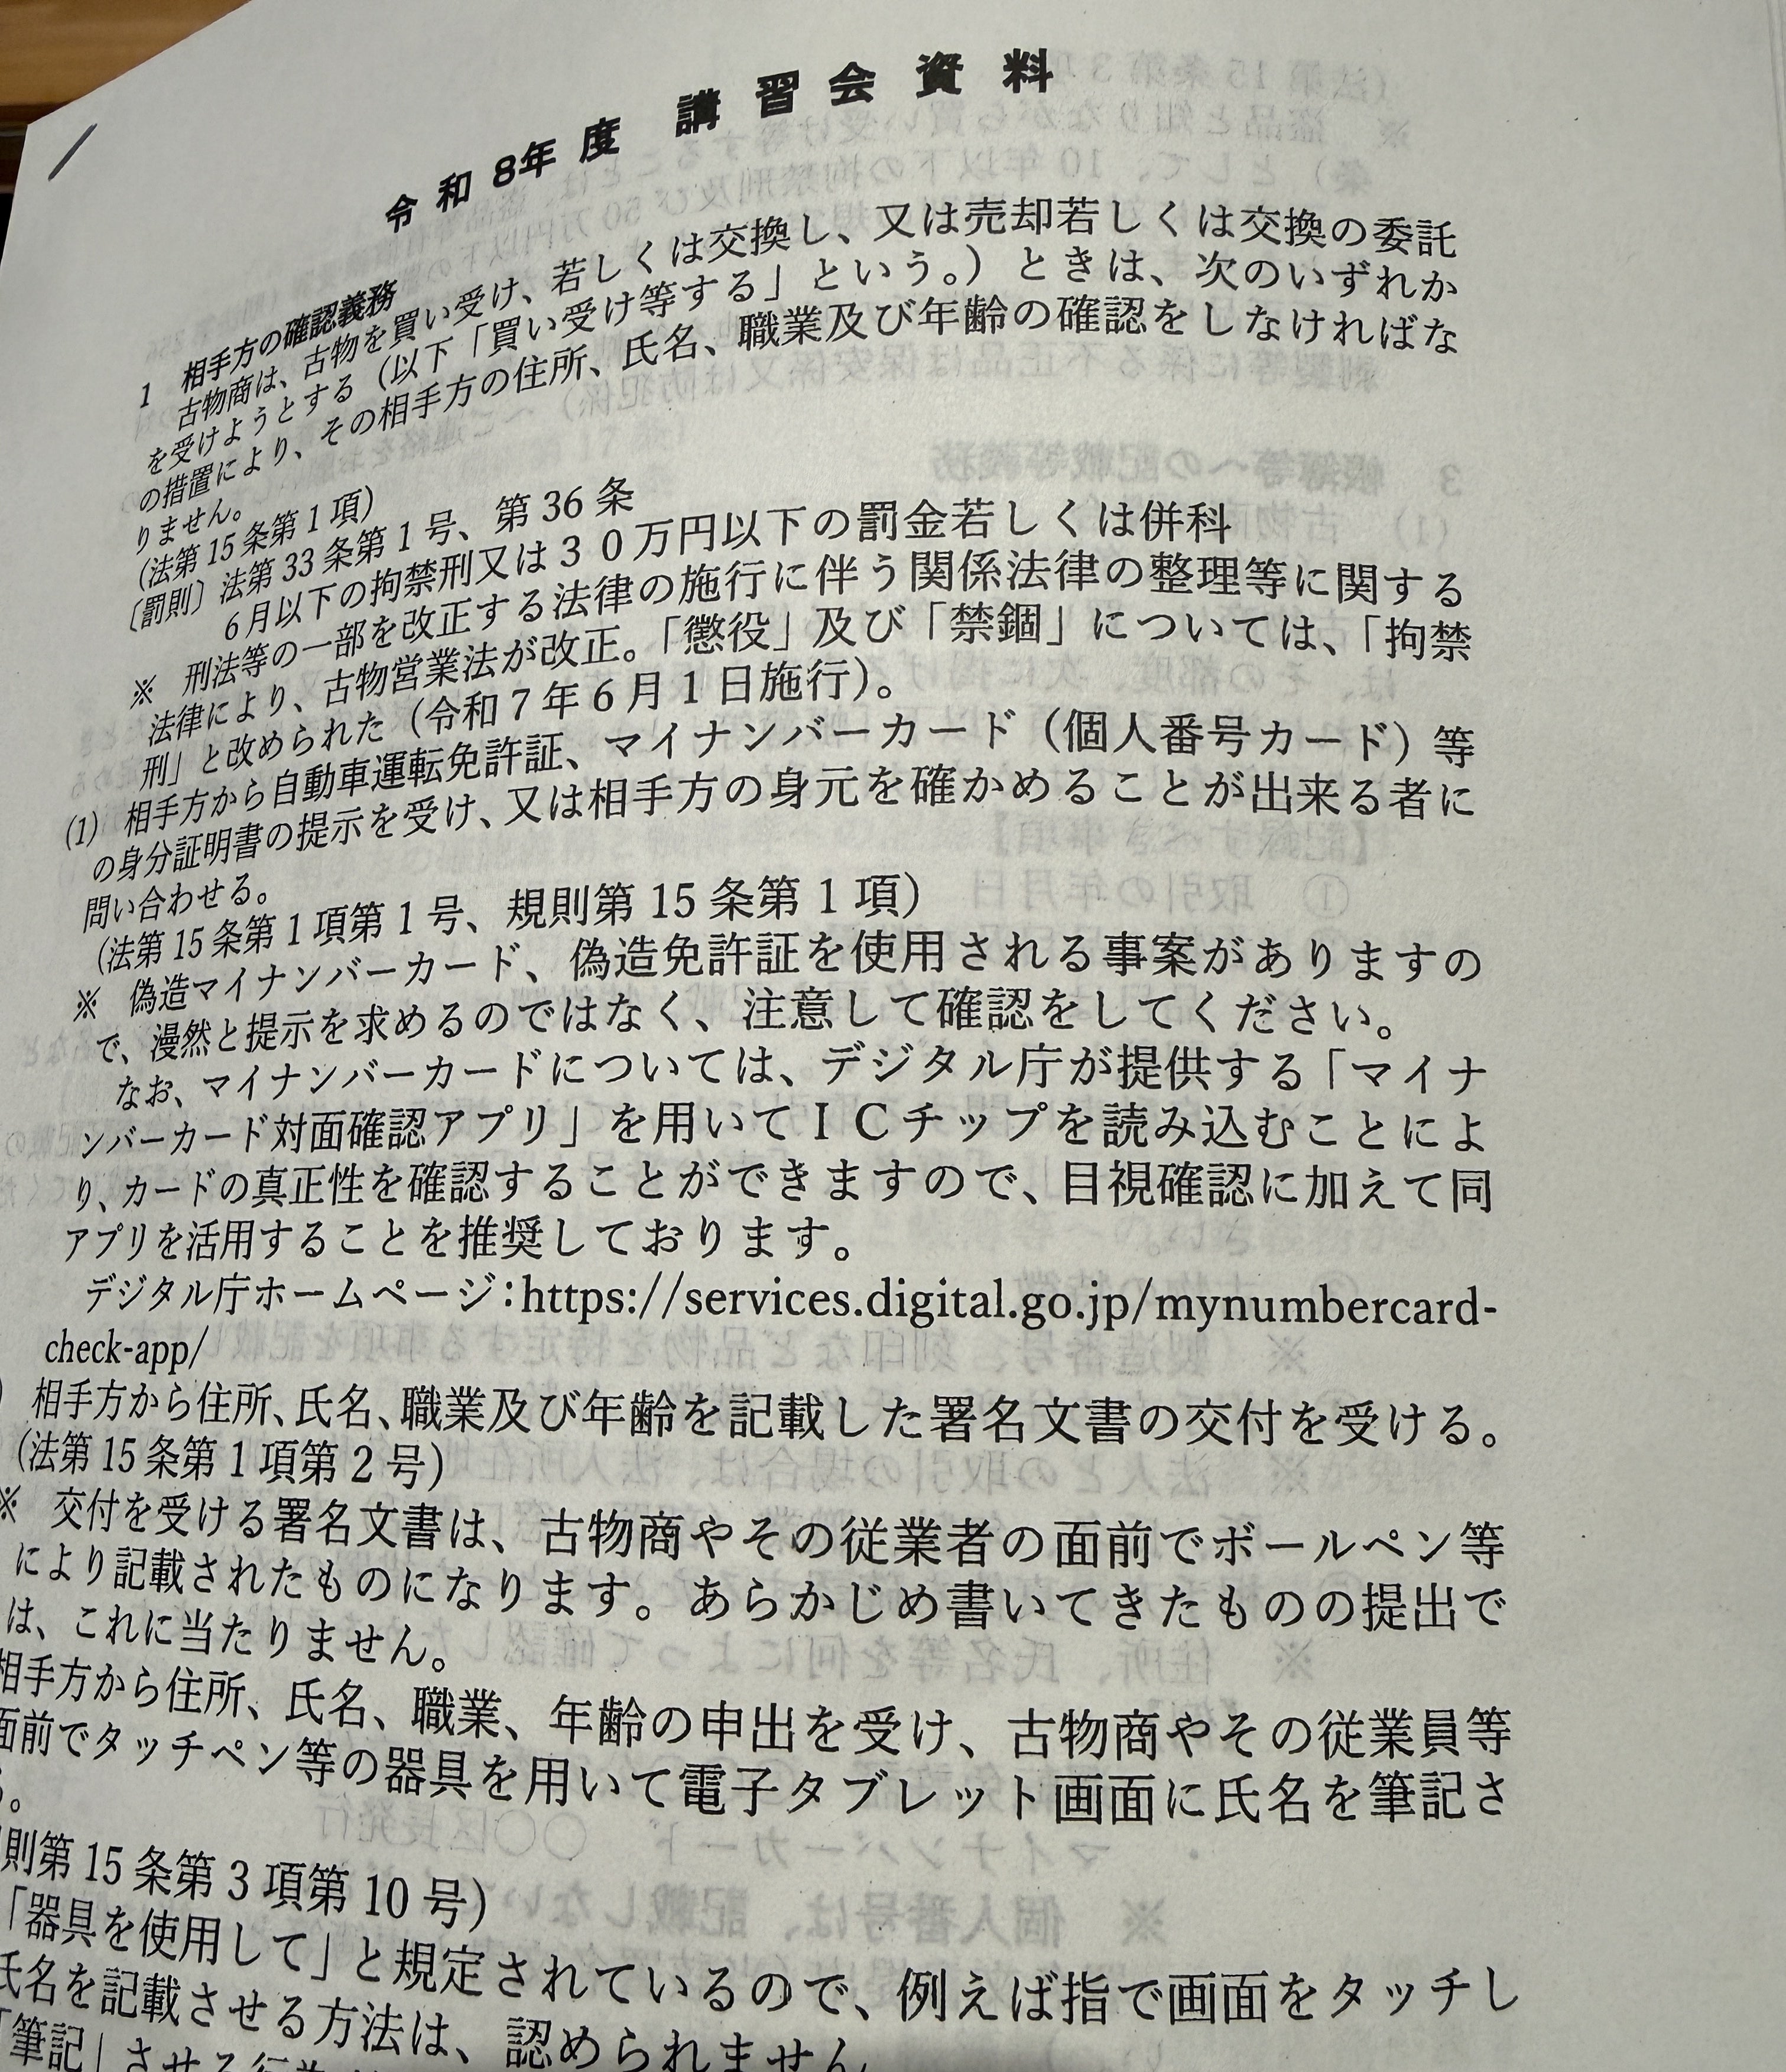 令和8年度 講習会資料
1 相手方の確認義務
古物商は、古物を買い受け、若しくは交換し、又は売却若しくは交換の委託
を受けようとする(以下「買い受け等する」という。)ときは、次のいずれか
の措置により、その相手方の住所、氏名、職業及び年齢の確認をしなければな
りません。
(法第15条第1項)
〔罰則〕法第33条第1号、第36条
6月以下の拘禁刑又は30万円以下の罰金若しくは併科
※ 刑法等の一部を改正する法律の施行に伴う関係法律の整理等に関する
法律により、古物営業法が改正。「懲役」及び「禁錮」については、「拘禁
刑」と改められた(令和7年6月1日施行)。
(1) 相手方から自動車運転免許証、マイナンバーカード(個人番号カード)等
の身分証明書の提示を受け、又は相手方の身元を確かめることが出来る者に
問い合わせる。
(法第15条第1項第1号、規則第15条第1項)
※ 偽造マイナンバーカード、偽造免許証を使用される事案がありますの
で、漫然と提示を求めるのではなく、注意して確認をしてください。
なお、マイナンバーカードについては、デジタル庁が提供する「マイナ
ンバーカード対面確認アプリ」を用いてICチップを読み込むことによ
り、カードの真正性を確認することができますので、目視確認に加えて同
アプリを活用することを推奨しております。
デジタル庁ホームページ:https://services.digital.go.jp/mynumbercard-
check-app/
) 相手方から住所、氏名、職業及び年齢を記載した署名文書の交付を受ける。
(法第15条第1項第2号)
※ 交付を受ける署名文書は、古物商やその従業者の面前でボールペン等
により記載されたものになります。あらかじめ書いてきたものの提出で
は、これに当たりません。
相手方から住所、氏名、職業、年齢の申出を受け、古物商やその従業員等
面前でタッチペン等の器具を用いて電子タブレット画面に氏名を筆記さ
る。
則第15条第3項第10号)
「器具を使用して」と規定されているので、例えば指で画面をタッチし
氏名を記載させる方法は、認められません
「筆記」させる行為